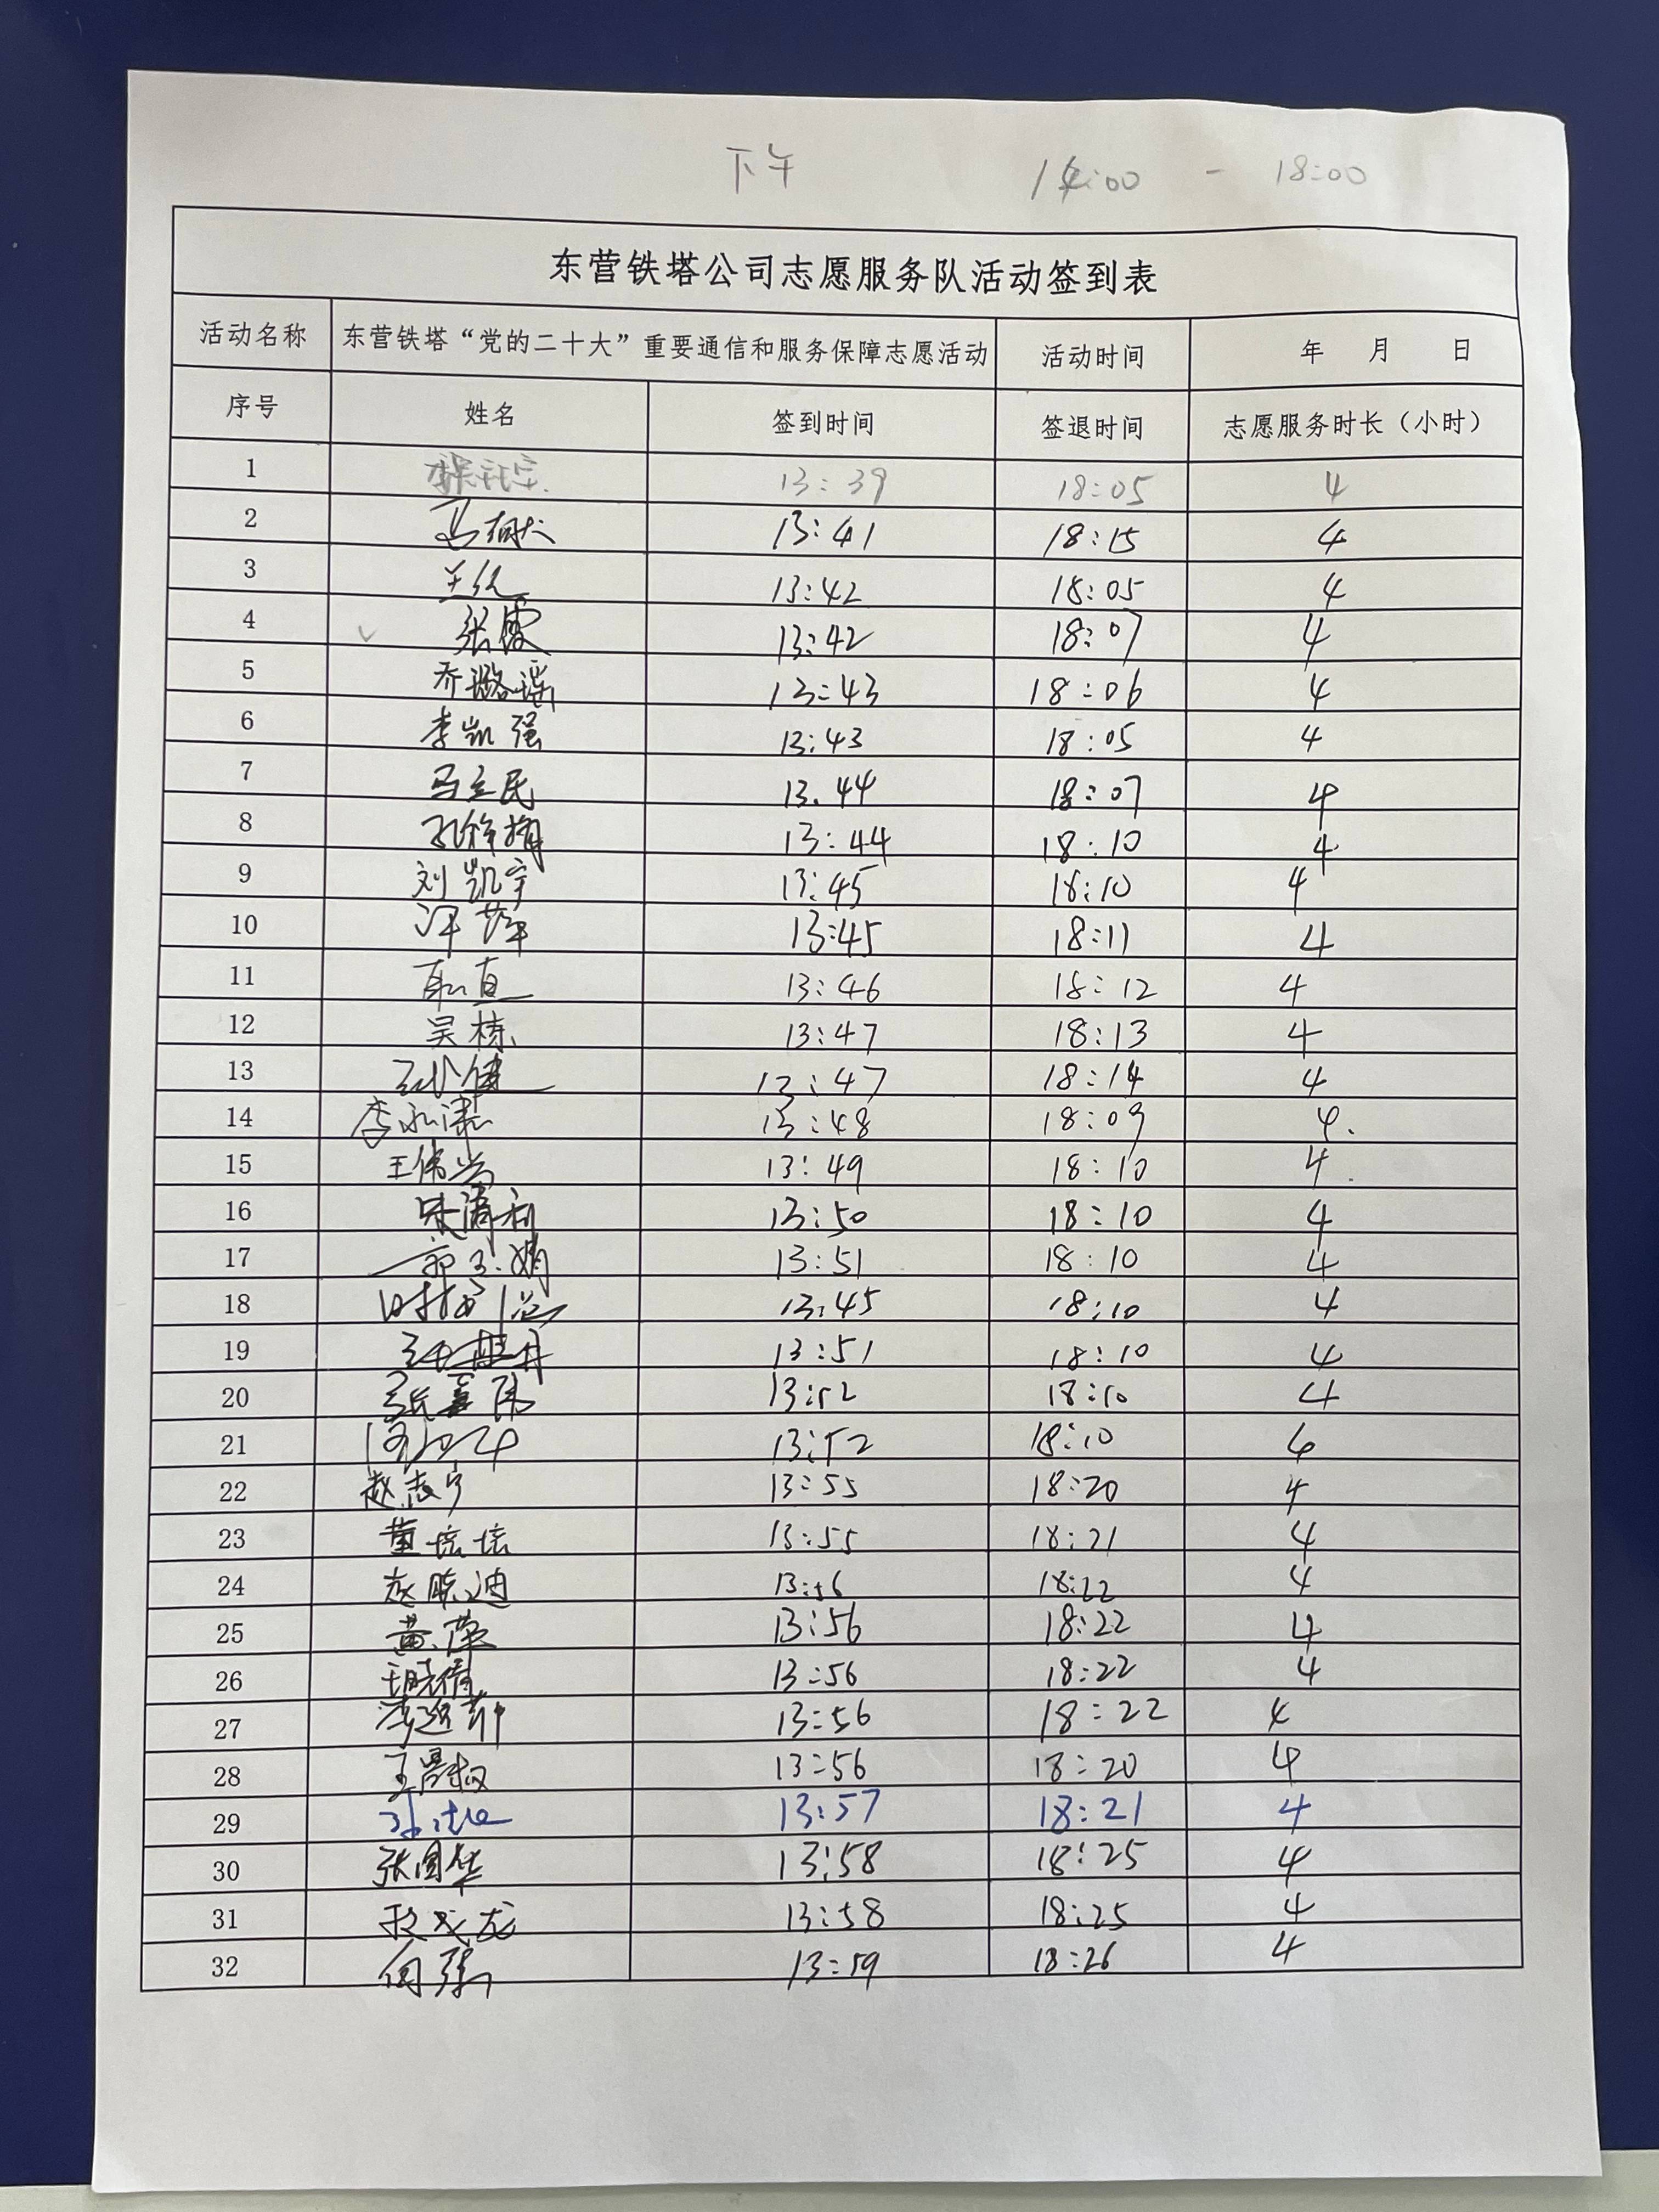 下午 14:00 - 18:00
东营铁塔公司志愿服务队活动签到表
活动名称 东营铁塔“党的二十大”重要通信和服务保障志愿活动 活动时间 年 月 日
序号 姓名 签到时间 签退时间 志愿服务时长（小时）
1 13:39 18:05 4
2 13:41 18:15 4
3 13:42 18:05 4
4 张霞 13:42 18:07 4
5 乔璐瑶 13:43 18:06 4
6 李凯强 13:43 18:05 4
7 马立民 13.44 18:07 4
8 13:44 18:10 4
9 刘凯宇 13:45 18:10 4
10 13:45 18:11 4
11 13:46 18:12 4
12 吴栋 13:47 18:13 4
13 13:47 18:14 4
14 13:48 18:09 4.
15 13:49 18:10 4.
16 13:50 18:10 4
17 13:51 18:10 4
18 13:45 18:10 4
19 13:51 18:10 4
20 13:52 18:10 4
21 13:52 18:10 4
22 赵志宁 13:55 18:20 4
23 董培培 13:55 18:21 4
24 13:56 18:22 4
25 黄萍 13:56 18:22 4
26 王晓倩 13:56 18:22 4
27 13:56 18:22 4
28 13:56 18:20 4
29 13:57 18:21 4
30 张国华 13:58 18:25 4
31 13:58 18:25 4
32 13:59 18:26 4